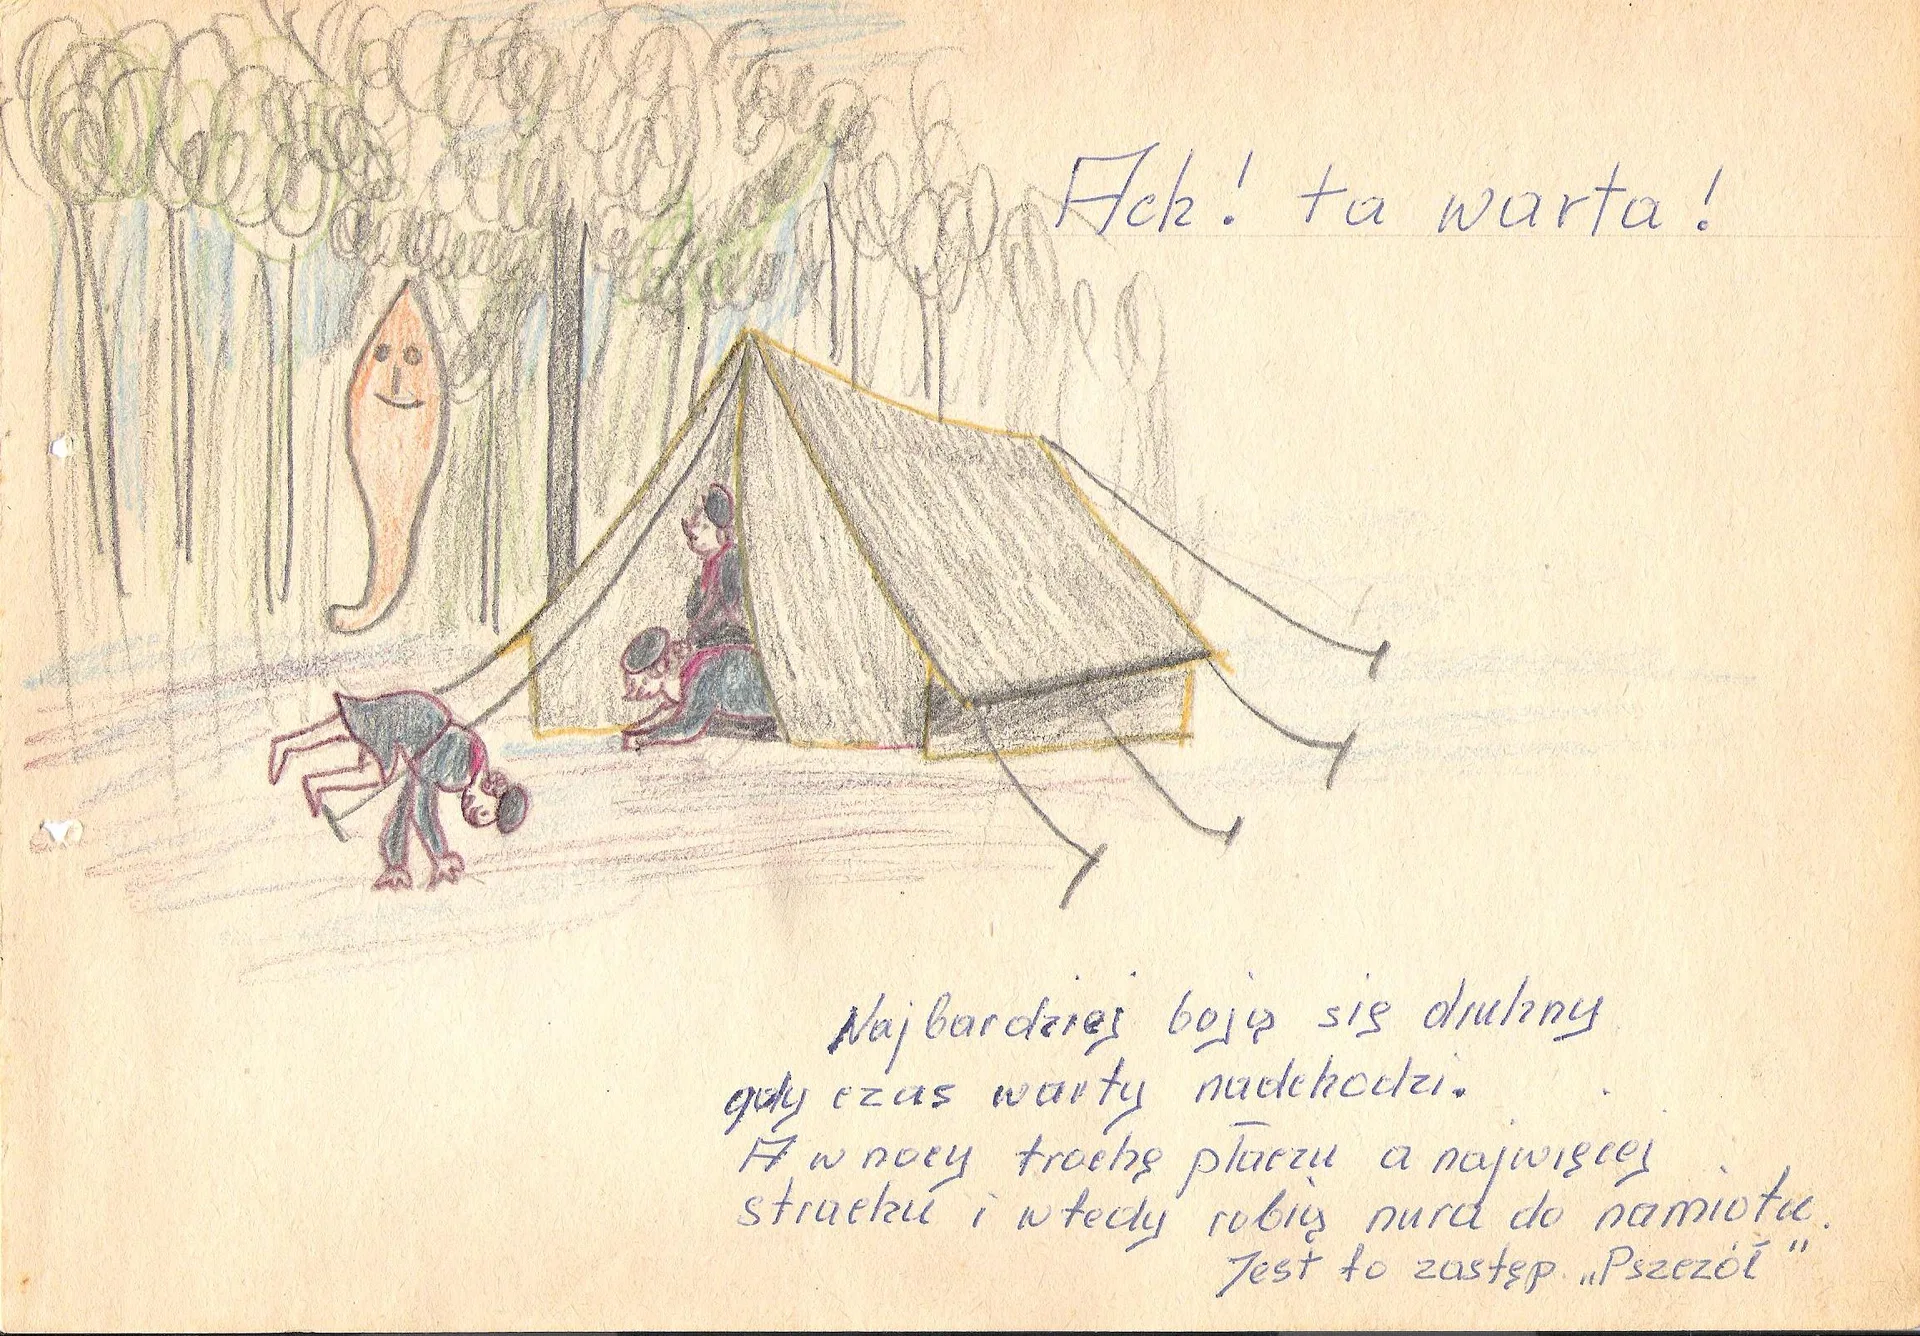 Ach! ta warta!
Najbardziej boją się druhny
gdy czas warty nadchodzi.
A w nocy trochę płaczu a najwięcej
strachu i wtedy robią nura do namiotu.
Jest to zastęp "Pszczół"